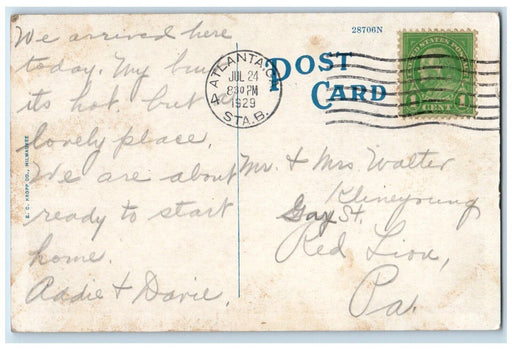 We arrived here
today. My but
its hot. but a
lovely place.
We are about
ready to start
home.
Addie + Davie.
E. C. KROPP CO., MILWAUKEE
28706N
POST
CARD
ATLANTA, GA.
JUL 24
8 30 PM
1929
STA. B.
4
UNITED STATES POSTAGE
1 CENT 1
Mr. + Mrs Walter
Klineyoung
Gay St.
Red Lion,
Pa.